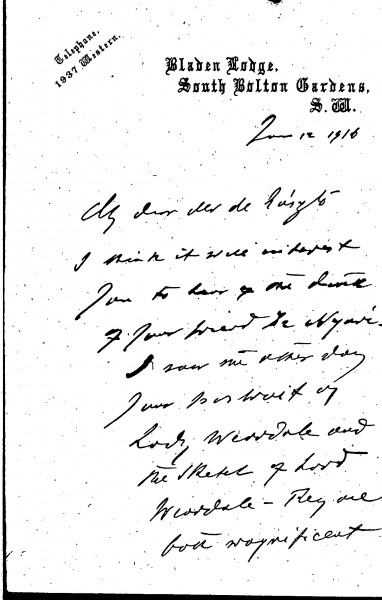 Telephone,
1937 Western.
Bladen Lodge,
South Bolton Gardens,
S.W.
12 1916
My dear de László
I think it will interest
you to hear of the death
of your friend de Nyári.
I saw the other day
your portrait of
Lady Weardale and
the sketch of Lord
Weardale - They are
both magnificent